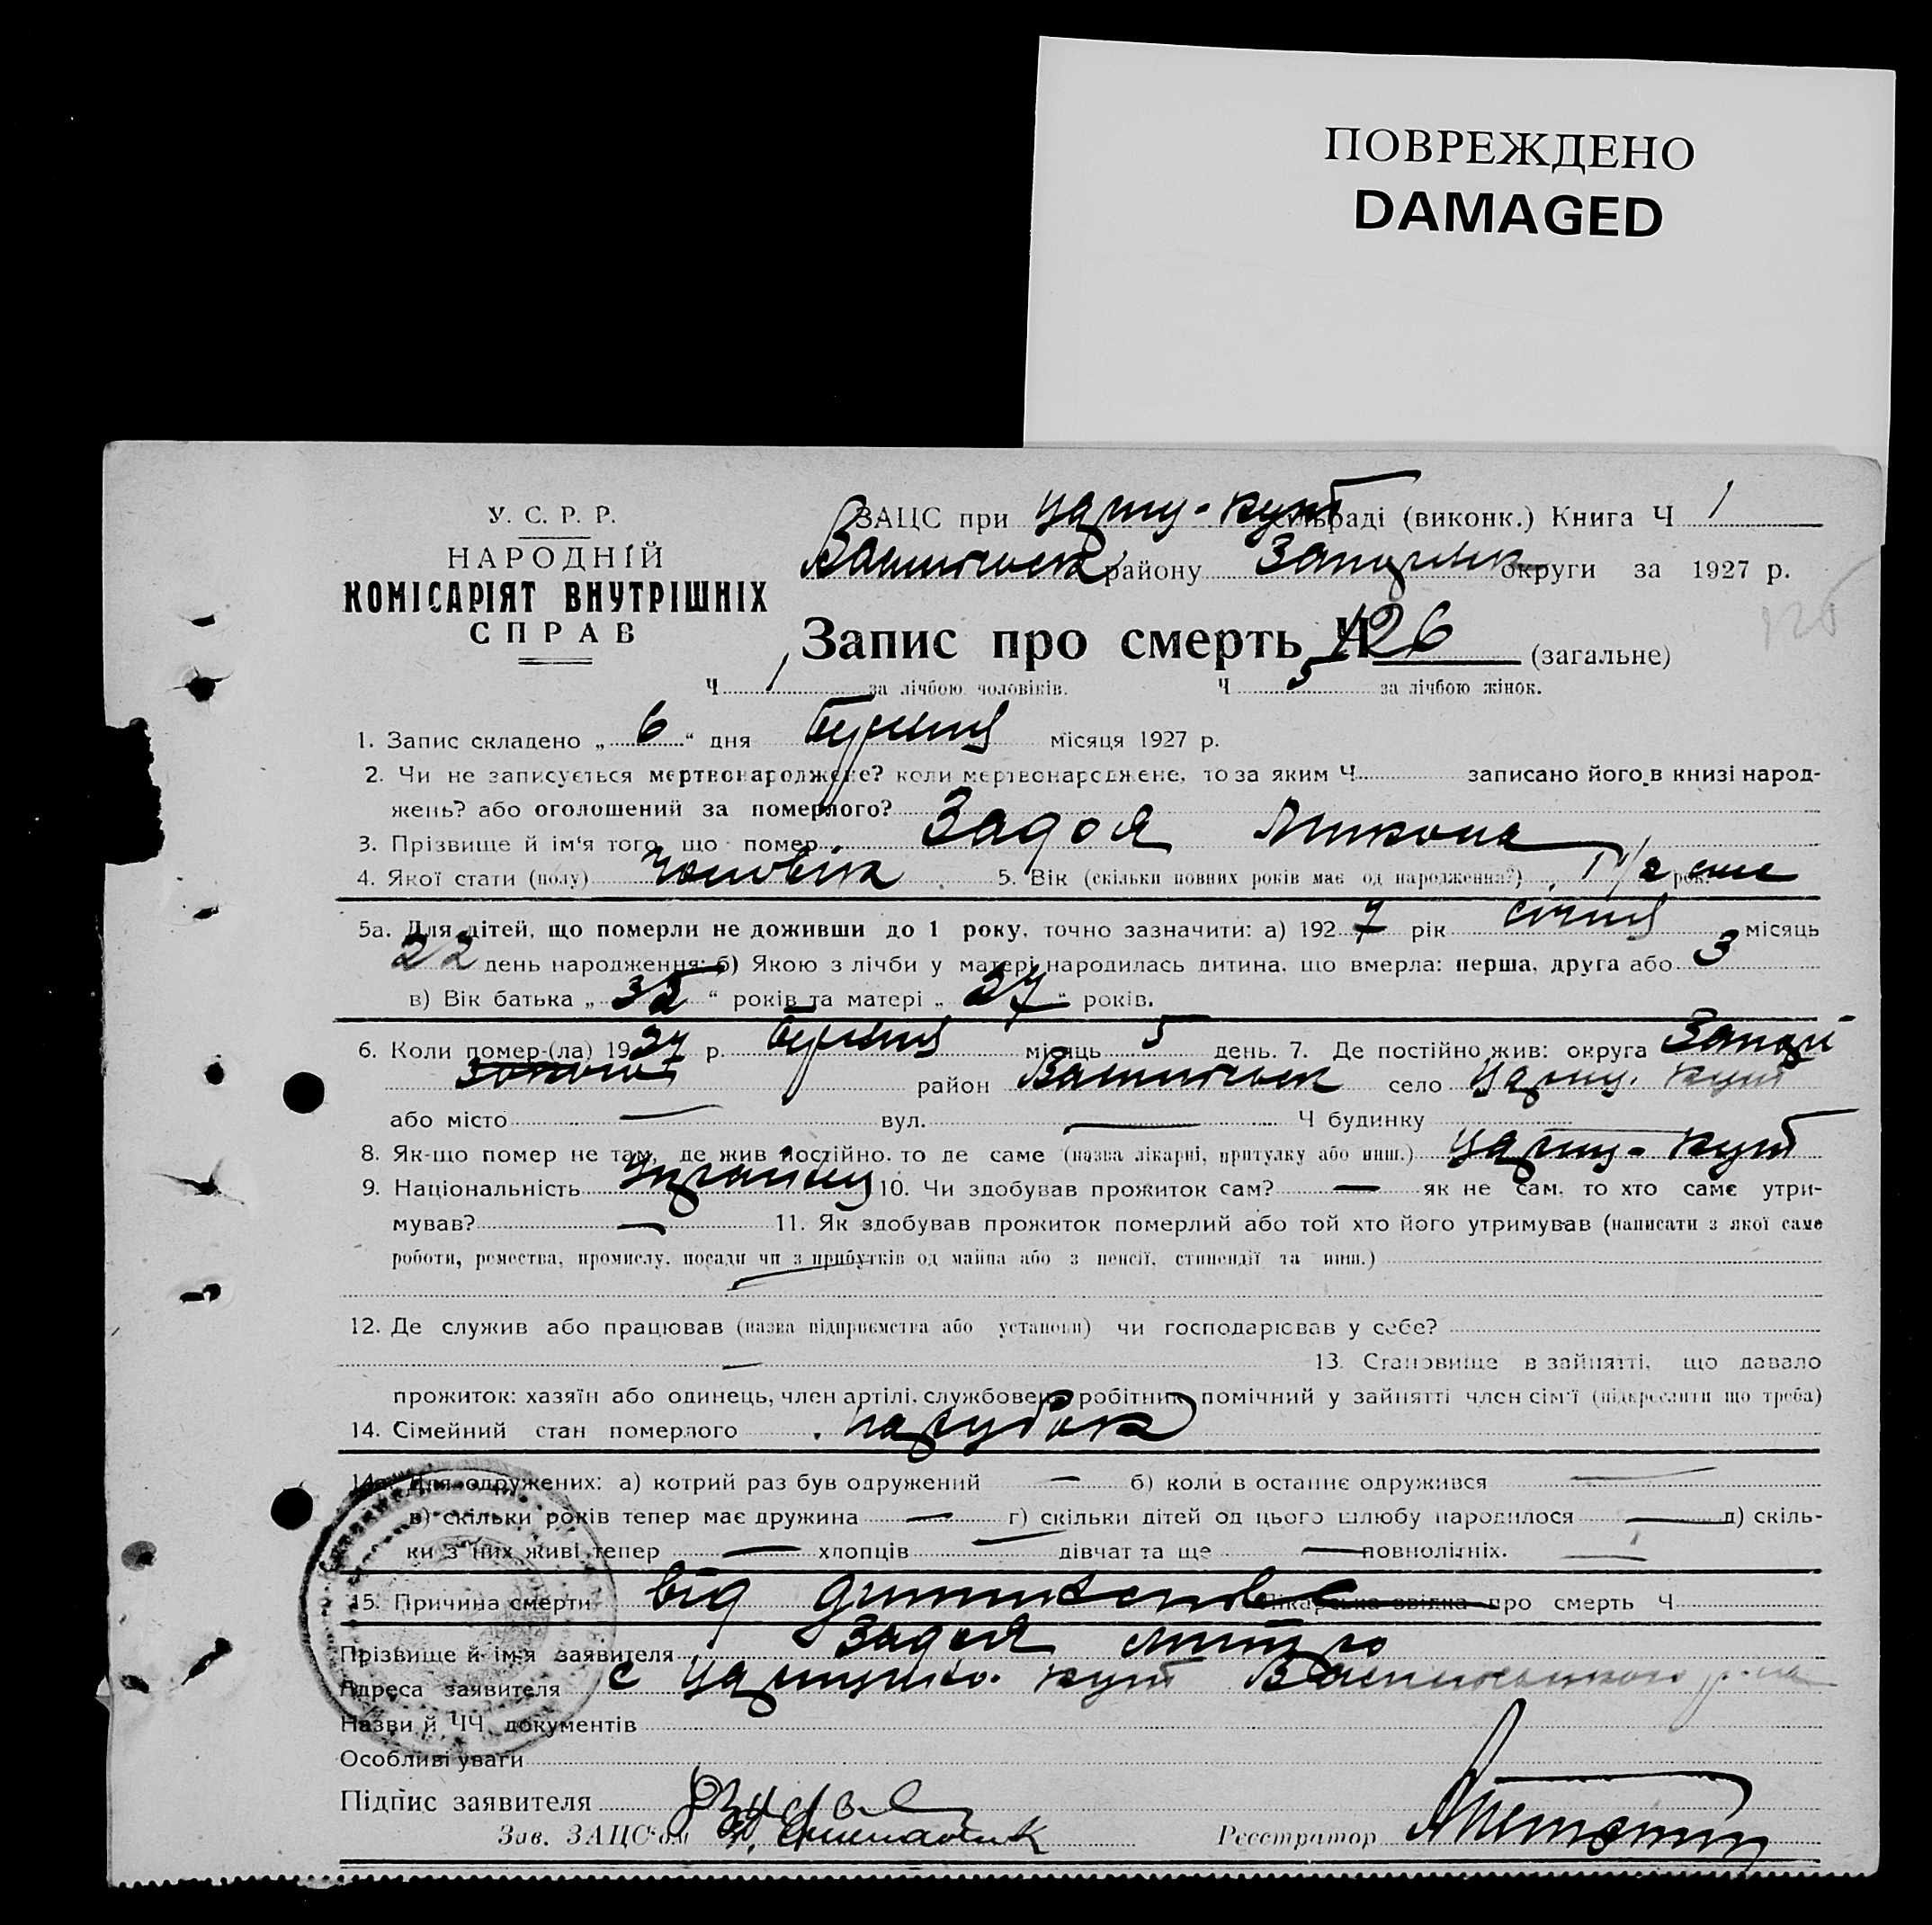 ПОВРЕЖДЕНО
DAMAGED
У. С. Р. Р.
НАРОДНІЙ
КОМІСАРІЯТ ВНУТРІШНІХ
СПРАВ
ЗАЦС при Царицо-Кут сільраді (виконк.) Книга Ч 1
району округи за 1927 р.
Запис про смерть Ч 126 (загальне)
Ч 1 за лічбою чоловіків. Ч 5 за лічбою жінок.
1. Запис складено „ 6 “ дня місяця 1927 р.
2. Чи не записується мертвонароджене? коли мертвонароджене, то за яким Ч записано його в книзі народ-
жень? або оголошений за померлого?
3. Прізвище й ім'я того, що помер Задоя Микола
4. Якої стати (полу) Чоловік 5. Вік (скільки повних років має од народження?) 1 1/2 рок.
5а. Для дітей, що померли не доживши до 1 року, точно зазначити: а) 1927 рік січня місяць
22 день народження; б) Якою з лічби у матері народилась дитина, що вмерла: перша, друга або 3
в) Вік батька „ 35 “ років та матері „ 27 “ років.
6. Коли помер-(ла) 1927 р. місяць 5 день. 7. Де постійно жив: округа Запорі
район село Цариц. Кут
або місто — вул. — Ч будинку
8. Як-що помер не там, де жив постійно, то де саме (назва лікарні, притулку або инш.) Цариц-Кут
9. Національність 10. Чи здобував прожиток сам? — як не сам, то хто саме утри-
мував? — 11. Як здобував прожиток померлий або той хто його утримував (написати з якої саме
роботи, ремества, промислу, посади чи з прибутків од майна або з пенсії, стипендії та инш.)
12. Де служив або працював (назва підприємства або установи) чи господарював у себе?
— 13. Становище в зайнятті, що давало
прожиток: хазяїн або одинець, член артілі, службовець, робітник, помічний у зайнятті член сім'ї (підкреслити що треба)
14. Сімейний стан померлого парубок
14а. Для одружених: а) котрий раз був одружений — б) коли в останнє одружився —
в) скільки років тепер має дружина — г) скільки дітей од цього шлюбу народилося — д) скіль-
ки з них живі тепер — хлопців — дівчат та ще — повнолітніх. —
15. Причина смерти від про смерть Ч
Прізвище й ім'я заявителя Задоя
Адреса заявителя с Кут
Назви й ЧЧ документів
Особливі уваги
Підпис заявителя
Зав. ЗАЦС'ом Реєстратор